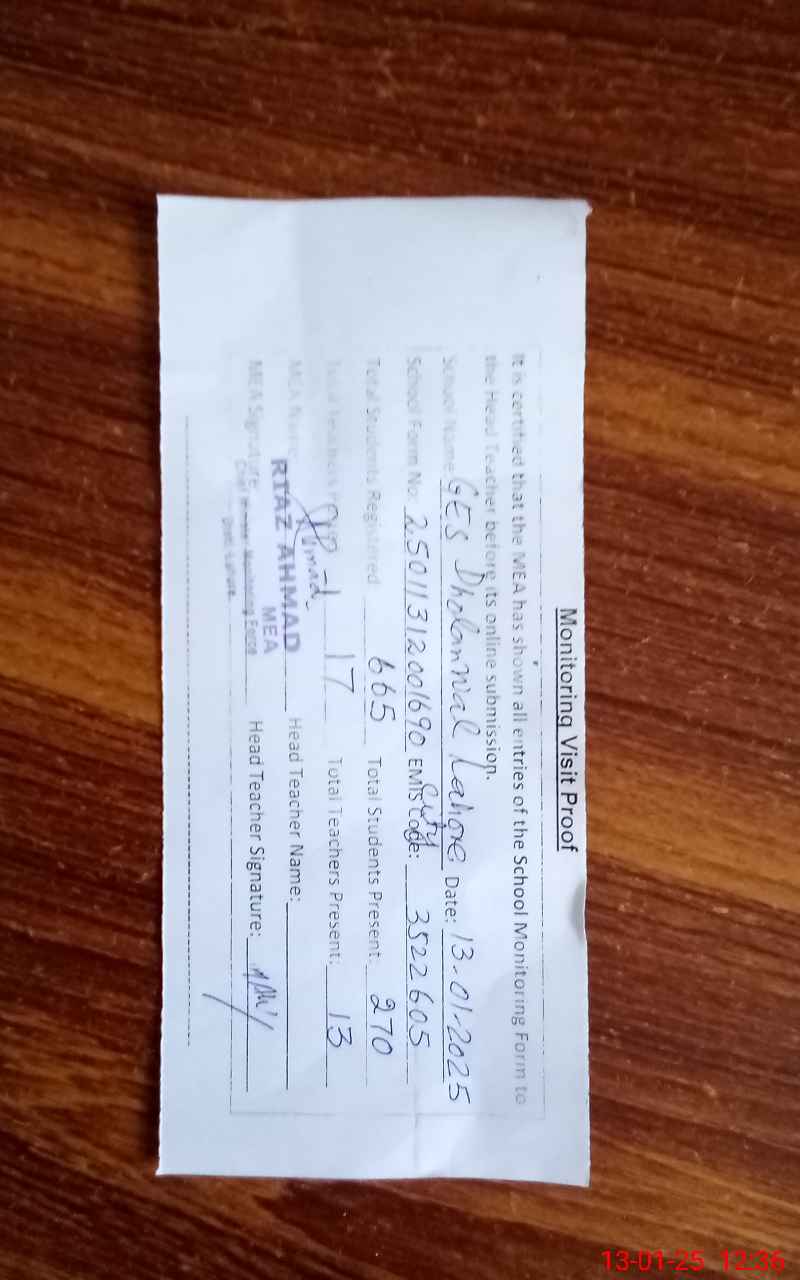 Monitoring Visit Proof
It is certified that the MEA has shown all entries of the School Monitoring Form to
the Head Teacher before its online submission.
School Name: GES Dholanwal Lahore City Date: 13-01-2025
School Form No: 25011312001690 EMIS Code: 3522605
Total Students Registered 665 Total Students Present: 270
Total Teachers 17 Total Teachers Present: 13
MEA Name Head Teacher Name:
RTAZ AHMAD
MEA
MEA Signature: Head Teacher Signature:
Monitoring Force
13-01-25 12:36